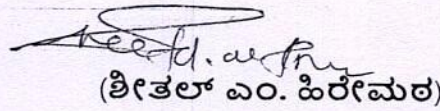 (ಶೀತಲ್ ಎಂ. ಹಿರೇಮಠ)